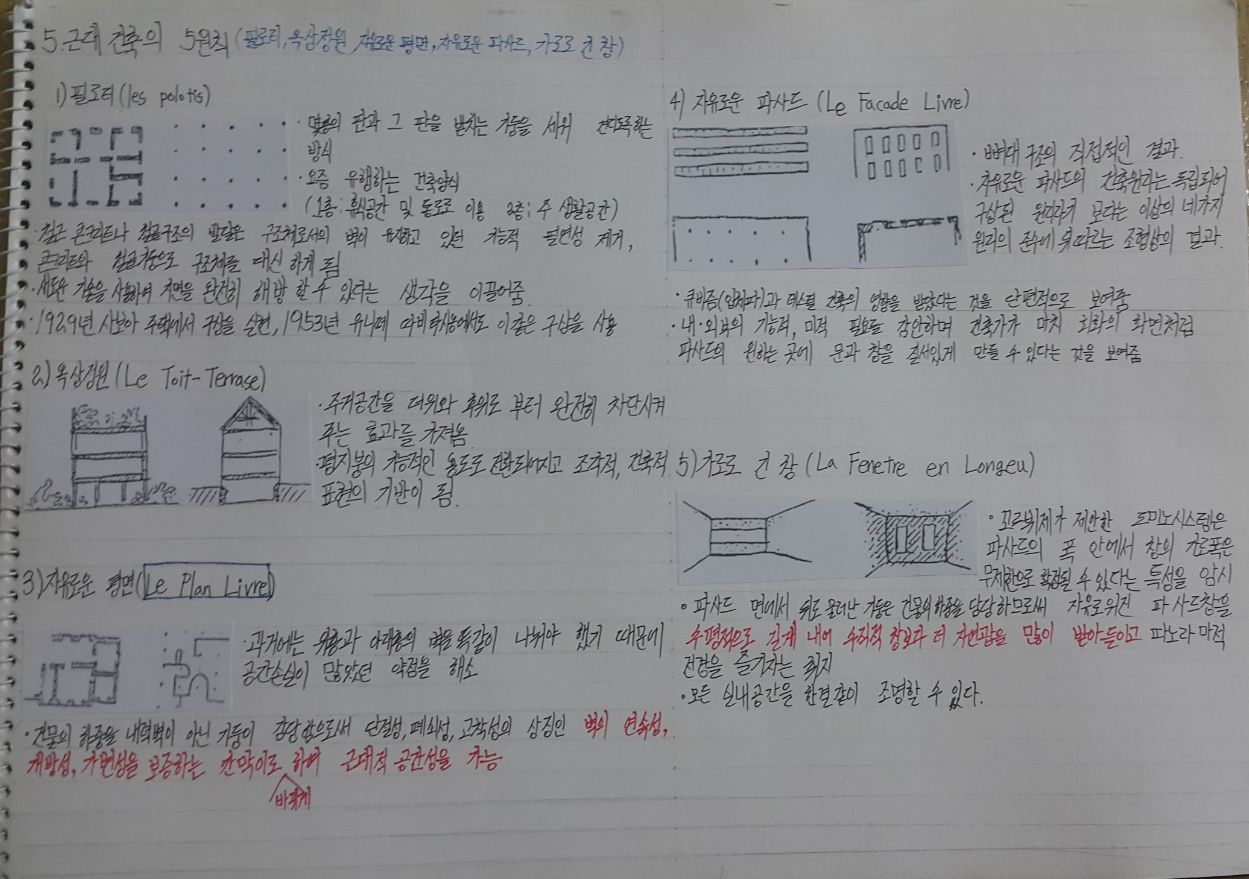 5. 근대 건축의 5원칙 (필로티, 옥상정원, 자유로운 평면, 자유로운 파사드, 가로로 긴 창)
1) 필로티 (les polotis)
· 몇층의 판과 그 판을 받치는 기둥을 세워 견디도록하는
방식
· 요즘 유행하는 건축양식
(1층: 휴식공간 및 통로로 이용 2층: 주 생활공간)
· 철근 콘크리트나 철골구조의 발달은 구조체로서의 벽이 유지하고 있던 기능적 필연성 제거,
콘크리트와 철골기둥으로 구조체를 대신 하게 됨
· 새로운 기술을 사용하여 지면을 완전히 해방 할 수 있다는 생각을 이끌어줌
· 1929년 사보아 주택에서 구상을 실현, 1953년 유니떼 다비타시옹에서도 이같은 구상을 사용
2) 옥상정원 (Le Toit-Terrase)
· 주거공간을 더위와 추위로 부터 완전히 차단시켜
주는 효과를 가져옴
· 평지붕의 기능적인 용도로 전환되어지고 조각적, 건축적
표현의 기반이 됨.
3) 자유로운 평면 (Le Plan Livre)
· 과거에는 위층과 아래층의 벽을 똑같이 나눠야 했기 때문에
공간손실이 많았던 약점을 해소
· 건물의 하중을 내력벽이 아닌 기둥이 감당함으로써 단절성, 폐쇄성, 고착성의 상징인 벽의 연속성,
개방성, 가변성을 보증하는 칸막이로 하여 근대적 공간성을 가능
바뀌게
4) 자유로운 파사드 (Le Facade Livre)
· 뼈대 구조의 직접적인 결과.
· 자유로운 파사드의 건축원리는 독립되어
구상된 원리라기 보다는 이상의 네가지
원리의 준수에 뒤따르는 조형상의 결과.
· 큐비즘(입체파)과 데스틸 건축의 영향을 받았다는 것을 단편적으로 보여줌
· 내·외부의 기능적, 미적 필요를 감안하며 건축가가 마치 회화의 화면처럼
파사드의 원하는 곳에 문과 창을 질서있게 만들 수 있다는 것을 보여줌
5) 가로로 긴 창 (La Fenetre en Longeu)
· 꼬르뷔제가 제안한 도미노시스템은
파사드의 폭 안에서 창의 가로폭은
무제한으로 확장될 수 있다는 특성을 암시
· 파사드 면에서 뒤로 물러난 기둥은 건물의 하중을 담당하므로써 자유로워진 파사드창을
수평적으로 길게 내어 수직적 창보다 더 자연광을 많이 받아들이고 파노라마적
전경을 즐기자는 취지
· 모든 실내공간을 한결같이 조명할 수 있다.